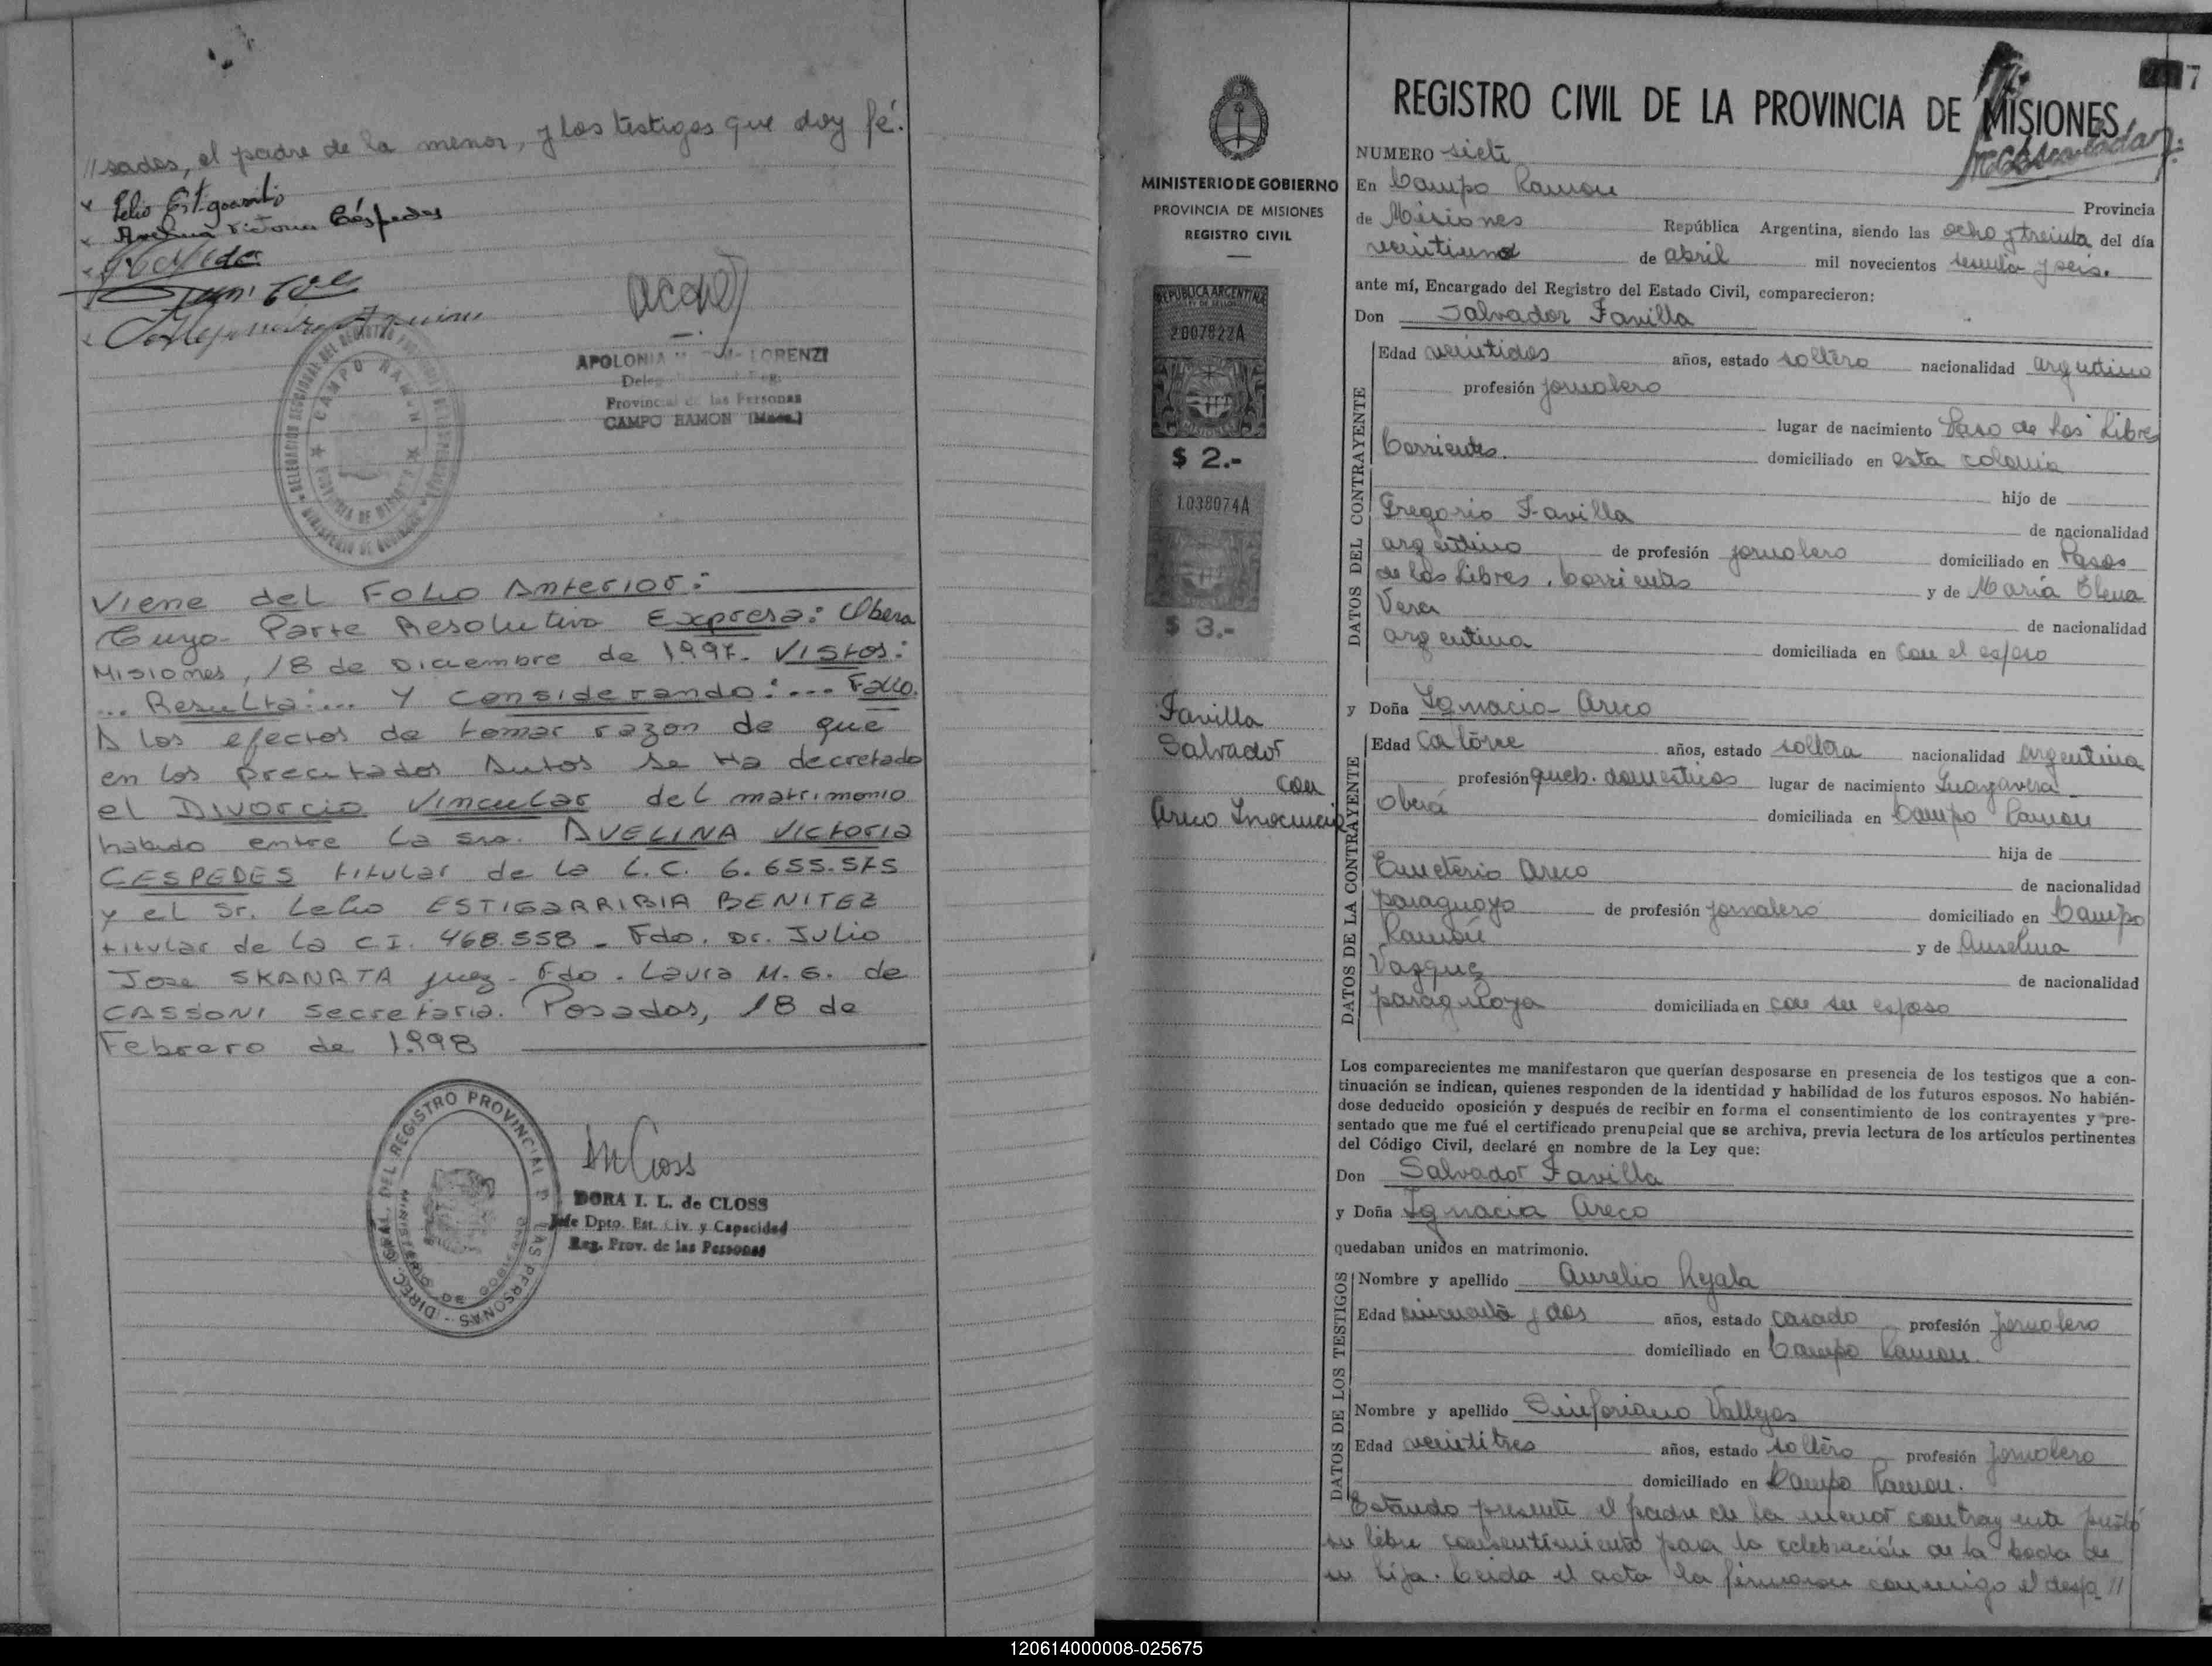 //sados, el padre de la menor, y los testigos que doy fé.
Avelina Victoria Céspedes
APOLONIA LORENZI
Provincial de las Personas
CAMPO RAMON (Mnes.)
DELEGACION SECCIONAL DEL REGISTRO PROVINCIAL DE LAS PERSONAS
CAMPO RAMON
PROVINCIA DE MISIONES
MINISTERIO DE GOBIERNO
Viene del Folio Anterior:
Cuyo Parte Resolutiva Expresa: Obera
Misiones, 18 de Diciembre de 1.997. Vistos:
... Resulta:... Y Considerando:... Fallo.
A los efectos de tomar razon de que
en los precitados Autos se Ha decretado
el Divorcio Vincular del matrimonio
habido entre la sra. AVELINA VICTORIA
CESPEDES titular de la L.C. 6.655.575
y el Sr. Lelio ESTIGARRIBIA BENITEZ
titular de la C.I. 468.558 - Fdo. Dr. Julio
Jose SKANATA juez - Fdo. Laura M. G. de
CASSONI Secretaria. Posadas, 18 de
Febrero de 1.998
DIREC. GRAL. DEL REGISTRO PROVINCIAL D LAS PERSONAS
DORA I. L. de CLOSS
Jefe Dpto. Est. Civ. y Capacidad
Reg. Prov. de las Personas
7
MINISTERIO DE GOBIERNO
PROVINCIA DE MISIONES
REGISTRO CIVIL
REPUBLICA ARGENTINA
2007822A
MISIONES
$ 2.-
1038074A
$ 3.-
Favilla
Salvador
con
Areco Inocencia
REGISTRO CIVIL DE LA PROVINCIA DE MISIONES
NUMERO siete
En Campo Ramon Provincia
de Misiones República Argentina, siendo las ocho y treinta del día
veintiuno de abril mil novecientos sesenta y seis.
ante mí, Encargado del Registro del Estado Civil, comparecieron:
Don Salvador Favilla
DATOS DEL CONTRAYENTE
Edad veintidos años, estado soltero nacionalidad argentino
profesión jornalero
lugar de nacimiento Paso de los Libres
Corrientes. domiciliado en esta colonia
hijo de
Gregorio Favilla de nacionalidad
argentino de profesión jornalero domiciliado en Pasos
de los Libres, Corrientes y de María Elena
Vera de nacionalidad
argentina domiciliada en con el esposo
y Doña Ignacia Areco
DATOS DE LA CONTRAYENTE
Edad catorce años, estado soltera nacionalidad argentina
profesión queh. domesticos lugar de nacimiento
Oberá domiciliada en Campo Ramon
hija de
Emeterio Areco de nacionalidad
paraguayo de profesión jornalero domiciliado en Campo
Ramón y de Anselma
Vazquez de nacionalidad
paraguaya domiciliada en con su esposo
Los comparecientes me manifestaron que querían desposarse en presencia de los testigos que a con-
tinuación se indican, quienes responden de la identidad y habilidad de los futuros esposos. No habién-
dose deducido oposición y después de recibir en forma el consentimiento de los contrayentes y pre-
sentado que me fué el certificado prenupcial que se archiva, previa lectura de los artículos pertinentes
del Código Civil, declaré en nombre de la Ley que:
Don Salvador Favilla
y Doña Ignacia Areco
quedaban unidos en matrimonio.
DATOS DE LOS TESTIGOS
Nombre y apellido Aurelio
Edad cincuenta y dos años, estado casado profesión jornalero
domiciliado en Campo Ramon.
Nombre y apellido Sinforiano Vallejos
Edad veintitres años, estado soltero profesión jornalero
domiciliado en Campo Ramon.
Estando presente el padre de la menor contrayente prestó
su libre consentimiento para la celebración de la boda de
su hija. Leida el acta la firmaron conmigo el desp//
120614000008-025675